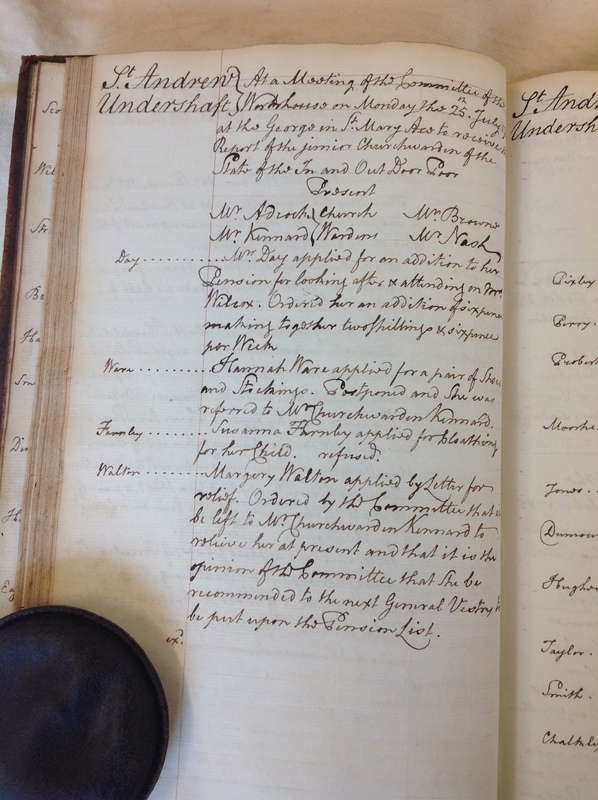 St. Andrew } At a Meeting of the Committee of the
Undershaft } Workhouse on Monday the 25th. July
at the George in St. Mary Axe to receive
Report of the junior Churchwarden of the
State of the In and Out Door Poor
Present
Mr. Adcock } Church Mr. Browne
Mr. Kennard } Wardens Mr. Nash
Day .......... Mrs. Day applied for an addition to her
Pension for looking after & attending on
Wilcox. Ordered her an addition of sixpence
making together two Shillings & sixpence
per Week
Ware .......... Hannah Ware applied for a pair of Shoes
and Stockings. Postponed and She was
referred to Mr. Churchwarden Kennard.
Farnley ........ Susanna Farnby applied for Cloathing
for her Child. refused.
Walton ........ Margery Walton applied by Letter for
relief. Ordered by the Committee that it
be left to Mr. Churchwarden Kennard to
relieve her at present and that it is the
opinion of the Committee that She be
recommended to the next General Vestry to
be put upon the Pension List.
exd.
Sco
Wil
Str
Bo
Ha
Sm
Din
H
Eg
St. Andr
Undersh
Pixley
Perry.
Probert
Moorhe
Jones.
Dumou
Hughes
Taylor.
Smith.
Chalkley